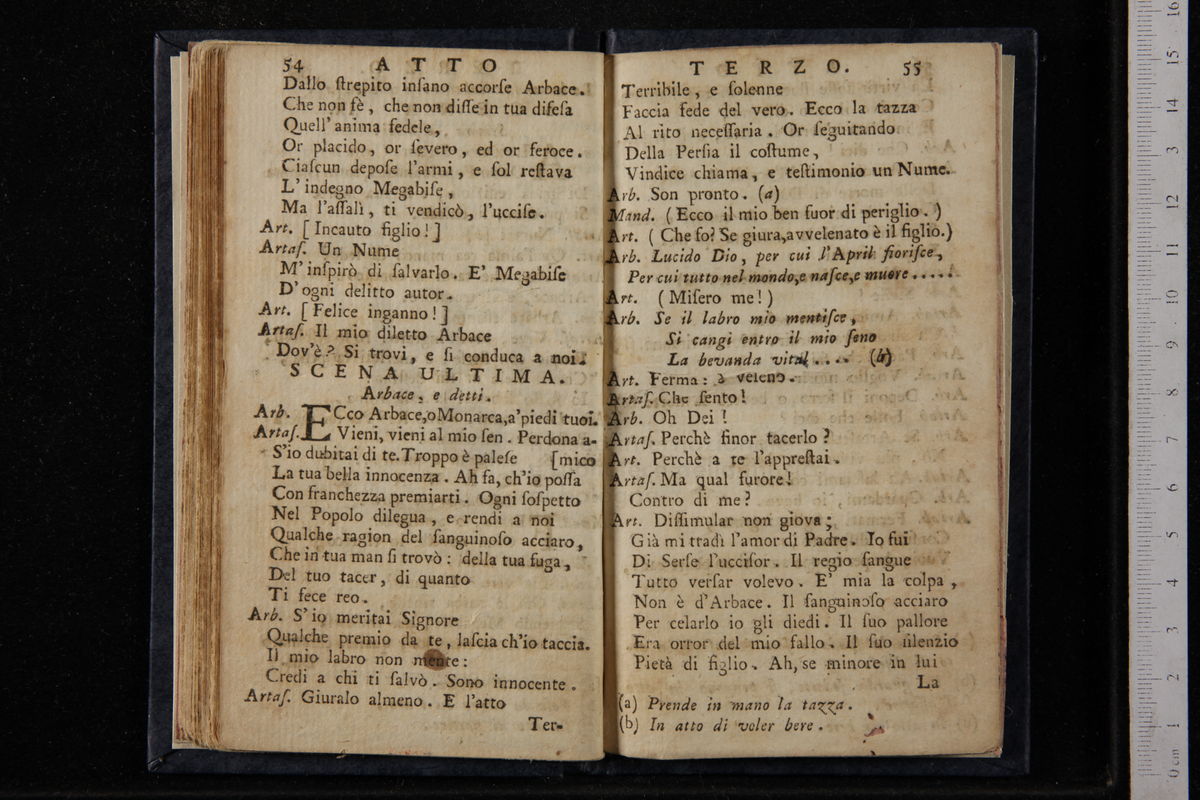 54 ATTO
Dallo ſtrepito inſano accorſe Arbace.
Che non fè, che non diſſe in tua difeſa
Quell' anima fedele,
Or placido, or ſevero, ed or feroce.
Ciaſcun depoſe l'armi, e ſol reſtava
L' indegno Megabiſe,
Ma l'aſſalì, ti vendicò, l'ucciſe.
Art. [Incauto figlio!]
Artaſ. Un Nume
M' inſpirò di ſalvarlo. E' Megabiſe
D' ogni delitto autor.
Art. [Felice inganno!]
Artaſ. Il mio diletto Arbace
Dov'è? Si trovi, e ſi conduca a noi.
SCENA ULTIMA.
Arbace, e detti.
Arb. ECco Arbace, o Monarca, a' piedi tuoi.
Artaſ. Vieni, vieni al mio ſen. Perdona a-
S'io dubitai di te. Troppo è paleſe [mico
La tua bella innocenza. Ah fa, ch'io poſſa
Con franchezza premiarti. Ogni ſoſpetto
Nel Popolo dilegua, e rendi a noi
Qualche ragion del ſanguinoſo acciaro,
Che in tua man ſi trovò: della tua fuga,
Del tuo tacer, di quanto
Ti fece reo.
Arb. S' io meritai Signore
Qualche premio da te, laſcia ch'io taccia.
Il mio labro non mente:
Credi a chi ti ſalvò. Sono innocente.
Artaſ. Giuralo almeno. E l'atto
Ter-
TERZO. 55
Terribile, e ſolenne
Faccia fede del vero. Ecco la tazza
Al rito neceſſaria. Or ſeguitando
Della Perſia il coſtume,
Vindice chiama, e teſtimonio un Nume.
Arb. Son pronto. (a)
Mand. (Ecco il mio ben fuor di periglio.)
Art. (Che fo? Se giura, avvelenato è il figlio.)
Arb. Lucido Dio, per cui l'April fioriſce,
Per cui tutto nel mondo, e naſce, e muore ....
Art. (Miſero me!)
Arb. Se il labro mio mentiſce,
Si cangi entro il mio ſeno
La bevanda vital .... (b)
Art. Ferma: è veleno.
Artaſ. Che ſento!
Arb. Oh Dei!
Artaſ. Perchè finor tacerlo?
Art. Perchè a te l'appreſtai.
Artaſ. Ma qual furore!
Contro di me?
Art. Diſſimular non giova;
Già mi tradì l'amor di Padre. Io fui
Di Serſe l'ucciſor. Il regio ſangue
Tutto verſar volevo. E' mia la colpa,
Non è d'Arbace. Il ſanguinoſo acciaro
Per celarlo io gli diedi. Il ſuo pallore
Era orror del mio fallo. Il ſuo ſilenzio
Pietà di figlio. Ah, se minore in lui
La
(a) Prende in mano la tazza.
(b) In atto di voler bere.
0 cm 1 2 3 4 5 6 7 8 9 10 11 12 13 14 15 16